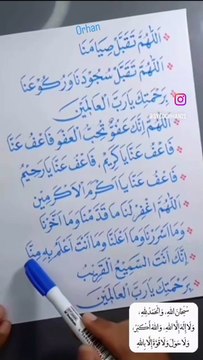 Orhan
اَللّٰهُمَّ تَقَبَّلْ صِيَامَنَا
اَللّٰهُمَّ تَقَبَّلْ سُجُوْدَنَا وَرُكُوْعَنَا
بِرَحْمَتِكَ يَا رَبَّ الْعَالَمِيْنَ
اَللّٰهُمَّ اِنَّكَ عَفُوٌّ تُحِبُّ الْعَفْوَ فَاعْفُ عَنَّا
فَاعْفُ عَنَّا يَا كَرِيْمُ، فَاعْفُ عَنَّا يَا رَحِيْمُ
فَاعْفُ عَنَّا يَا اَكْرَمَ الْاَكْرَمِيْنَ
اَللّٰهُمَّ اغْفِرْ لَنَا مَا قَدَّمْنَا وَمَا اَخَّرْنَا
وَمَا اَسْرَرْنَا وَمَا اَعْلَنَّا وَمَا اَنْتَ اَعْلَمُ بِهِ مِنَّا
اِنَّكَ اَنْتَ السَّمِيْعُ الْقَرِيْبُ
بِرَحْمَتِكَ يَا رَبَّ الْعَالَمِيْنَ
سُبْحَانَ اللهِ، وَالْحَمْدُ لِلّٰهِ،
وَلَا إِلٰهَ إِلَّا اللهُ، وَاللهُ أَكْبَرُ،
وَلَا حَوْلَ وَلَا قُوَّةَ إِلَّا بِاللهِ